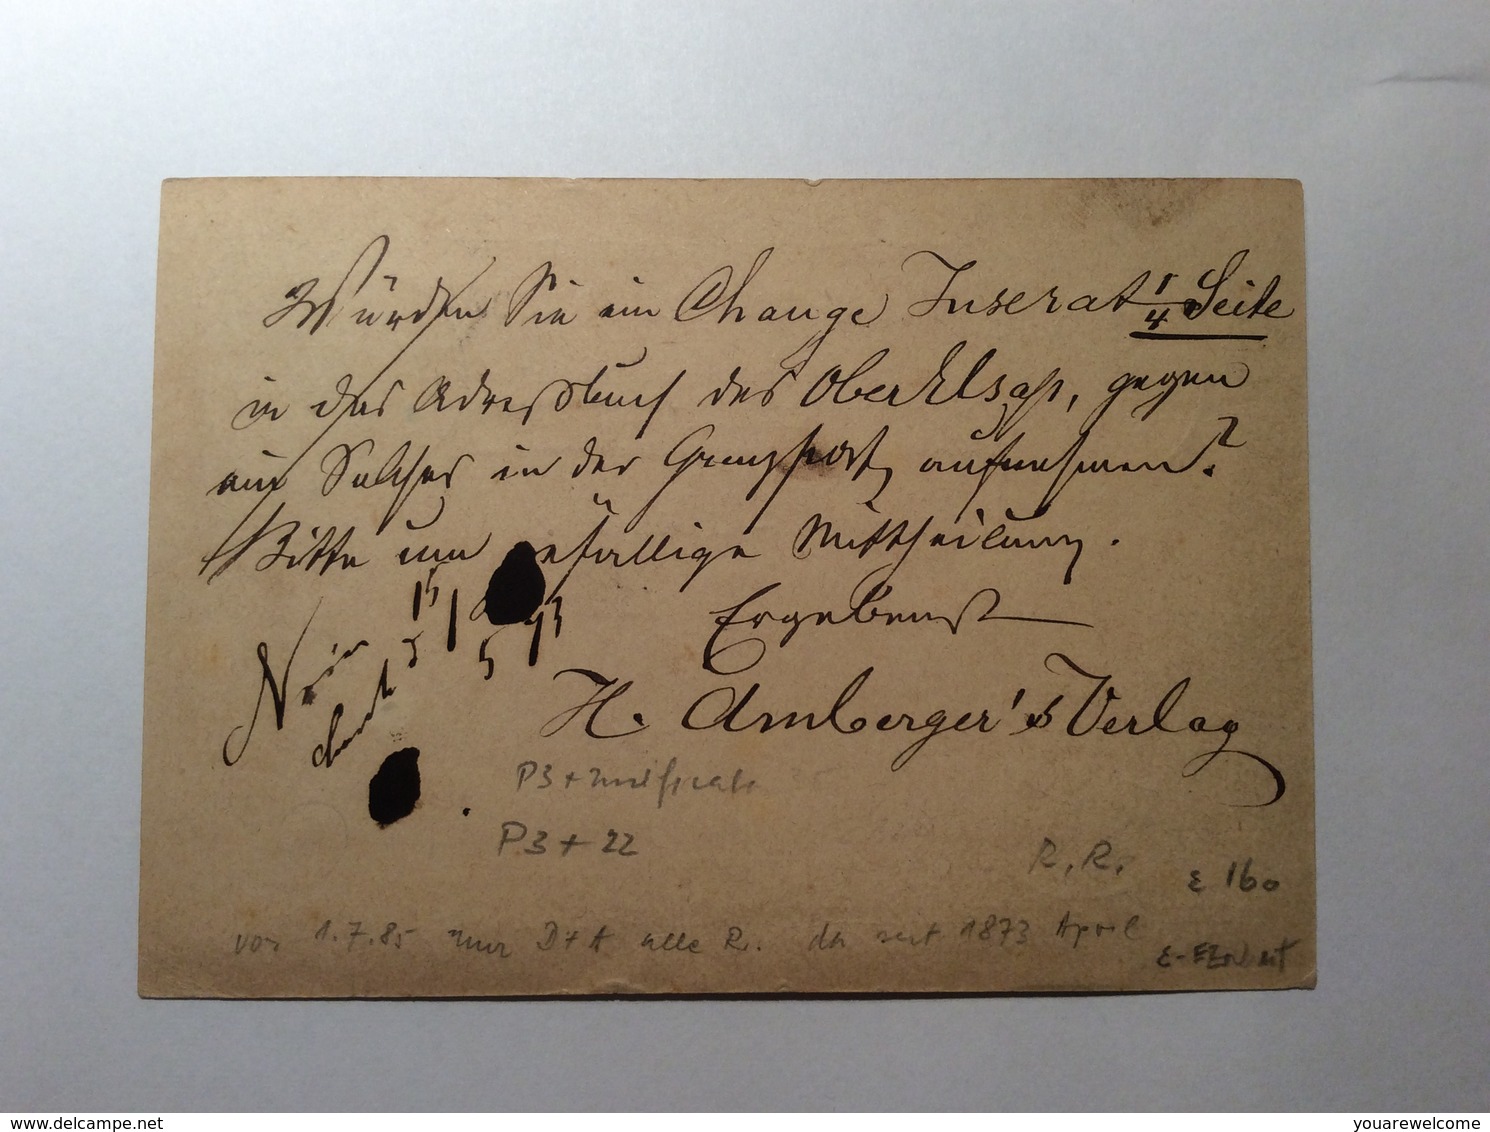 Würden Sie ein Change Inserat 1/4 Seite
in das Adreßbuch des Ober Elsaß, gegen
ein Solches in der aufnehmen?
Bitte um gefällige Mittheilung.
Ergebenst
H. Amberger's Verlag
Nein
15/5 93
P3 +
P3 + 22
R.R.
160
vor 1.7.85 nur D+A alle R. da seit 1873 April
www.delcampe.net
youarewelcome